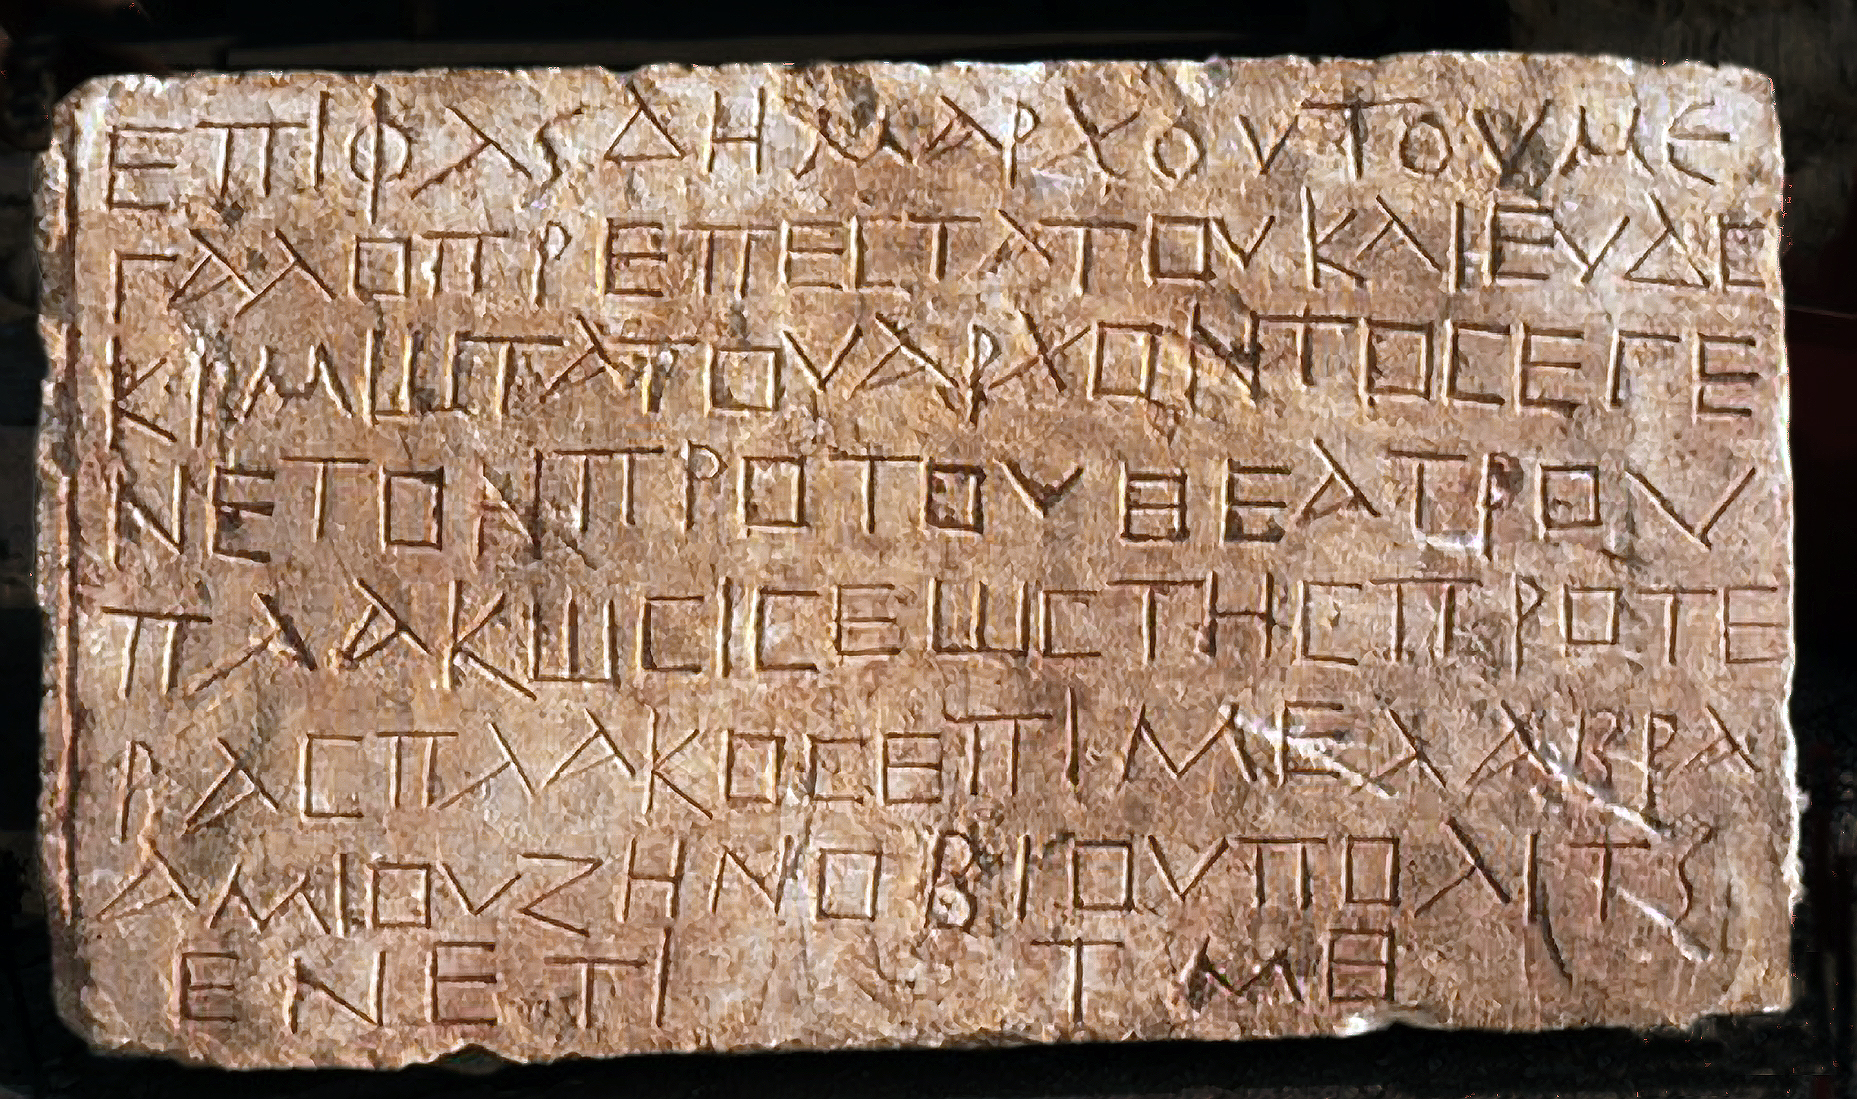 ΕΠΙΦΛSΔΗΜΑΡΧΟΥΤΟΥΜΕ
ΓΑΛΟΠΡΕΠΕϹΤΑΤΟΥΚΑΙΕΥΔΕ
ΚΙΜΩΤΑΤΟΥΑΡΧΟΝΤΟϹΕΓΕ
ΝΕΤΟΗΠΡΟΤΟΥΘΕΑΤΡΟΥ
ΠΛΑΚΩϹΙϹΕΩϹΤΗϹΠΡΟΤΕ
ΡΑϹΠΛΑΚΟϹΕΠΙΜΕΛΑΒΡΑ
ΑΜΙΟΥΖΗΝΟΒΙΟΥΠΟΛΙΤS
ΕΝΕΤΙ ΤΜΘ